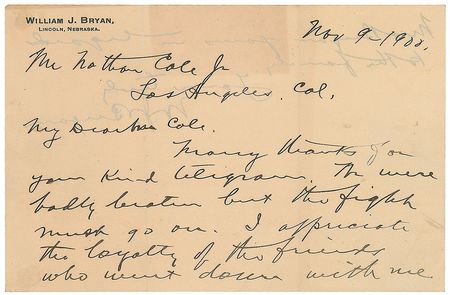 WILLIAM J. BRYAN,
LINCOLN, NEBRASKA.
Nov 9 - 1900.
Mr Nathan Cole Jr
Los Angeles. Cal.
My Dear Mr Cole.
Many thanks for
your kind telegram. We were
badly beaten but the fight
must go on. I appreciate
the loyalty of the friends
who went down with me